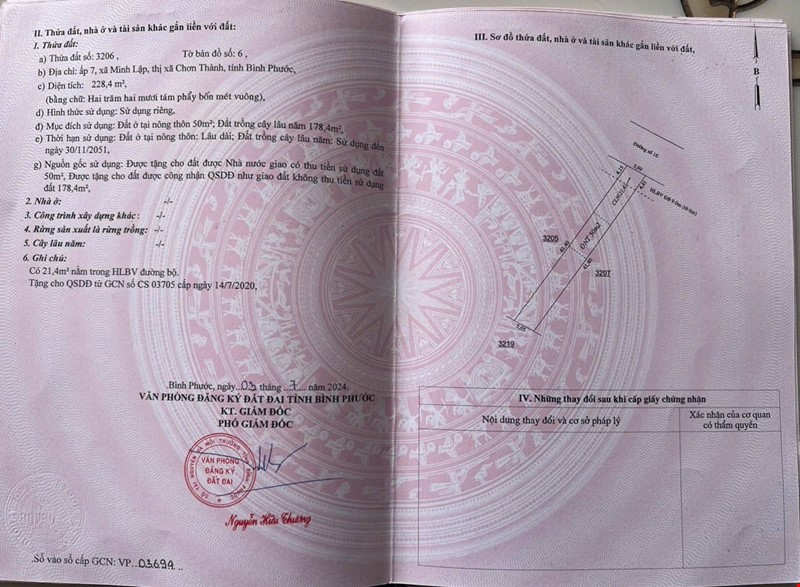 II. Thửa đất, nhà ở và tài sản khác gắn liền với đất:
1. Thửa đất:
a) Thửa đất số: 3206 , Tờ bản đồ số: 6 ,
b) Địa chỉ: ấp 7, xã Minh Lập, thị xã Chơn Thành, tỉnh Bình Phước,
c) Diện tích: 228,4 m²,
(bằng chữ: Hai trăm hai mươi tám phẩy bốn mét vuông),
d) Hình thức sử dụng: Sử dụng riêng,
đ) Mục đích sử dụng: Đất ở tại nông thôn 50m²; Đất trồng cây lâu năm 178,4m²,
e) Thời hạn sử dụng: Đất ở tại nông thôn: Lâu dài; Đất trồng cây lâu năm: Sử dụng đến
ngày 30/11/2051,
g) Nguồn gốc sử dụng: Được tặng cho đất được Nhà nước giao có thu tiền sử dụng đất
50m², Được tặng cho đất được công nhận QSDĐ như giao đất không thu tiền sử dụng
đất 178,4m²,
2. Nhà ở: -/-
3. Công trình xây dựng khác: -/-
4. Rừng sản xuất là rừng trồng: -/-
5. Cây lâu năm: -/-
6. Ghi chú:
Có 21,4m² nằm trong HLBV đường bộ.
Tặng cho QSDĐ từ GCN số CS 03705 cấp ngày 14/7/2020,
Bình Phước, ngày 03 tháng 7 năm 2024
VĂN PHÒNG ĐĂNG KÝ ĐẤT ĐAI TỈNH BÌNH PHƯỚC
KT. GIÁM ĐỐC
PHÓ GIÁM ĐỐC
VĂN PHÒNG
ĐĂNG KÝ
ĐẤT ĐAI
Nguyễn Hữu Thương
Số vào sổ cấp GCN: VP..03694..
III. Sơ đồ thửa đất, nhà ở và tài sản khác gắn liền với đất,
B
Đường số 16
5,00
4,15
HLBV
3205
ONT 50m²
3207
5,05
3219
IV. Những thay đổi sau khi cấp giấy chứng nhận
Nội dung thay đổi và cơ sở pháp lý
Xác nhận của cơ quan
có thẩm quyền